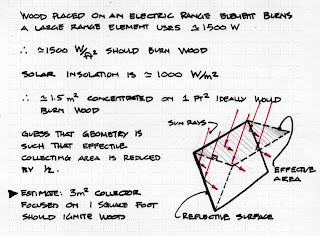 WOOD PLACED ON AN ELECTRIC RANGE ELEMENT BURNS
A LARGE RANGE ELEMENT USES ≃ 1500 W
∴ ≃ 1500 W/ft² SHOULD BURN WOOD
SOLAR INSOLATION IS ≃ 1000 W/m²
∴ ≃ 1.5 m² CONCENTRATED ON 1 FT² IDEALLY WOULD
BURN WOOD
SUN RAYS
GUESS THAT GEOMETRY IS
SUCH THAT EFFECTIVE
COLLECTING AREA IS REDUCED
BY ½.
EFFECTIVE
AREA
▶ ESTIMATE: 3m² COLLECTOR
FOCUSED ON 1 SQUARE FOOT
SHOULD IGNITE WOOD
REFLECTIVE SURFACE